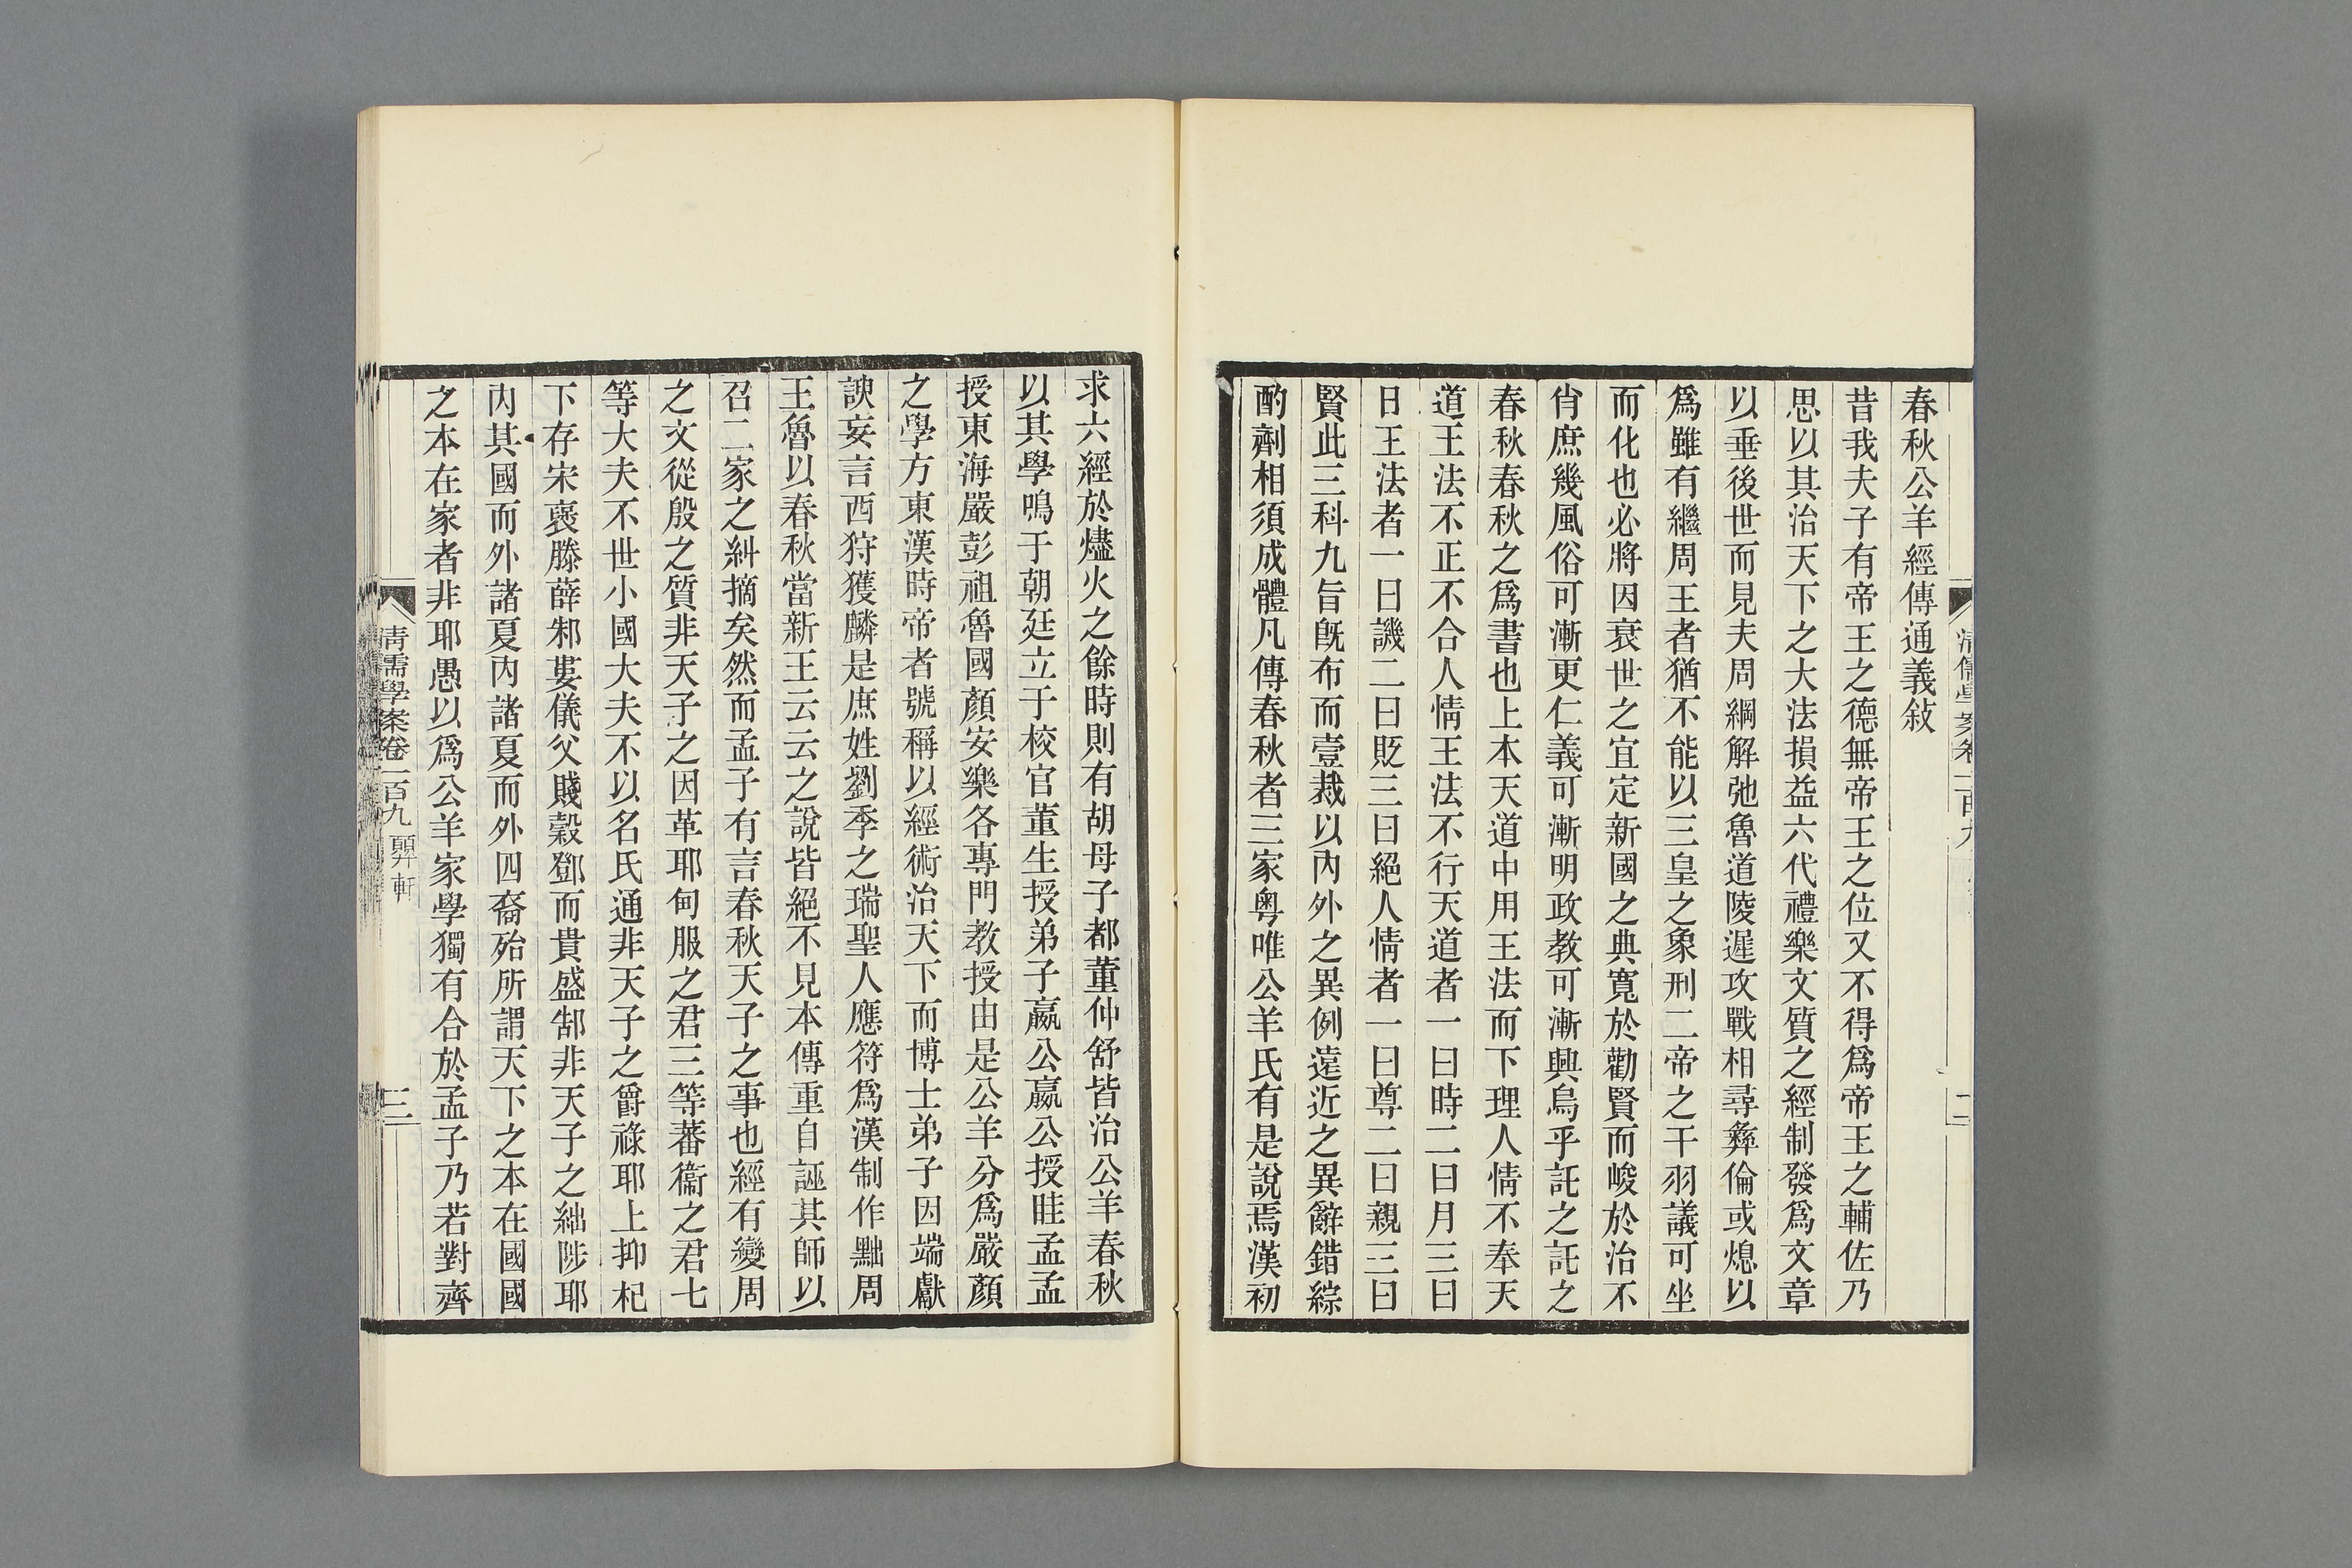 春秋公羊經傳通義敍
昔我夫子有帝王之德無帝王之位又不得爲帝王之輔佐乃
思以其治天下之大法損益六代禮樂文質之經制發爲文章
以垂後世而見夫周綱解弛魯道陵遲攻戰相尋彝倫或熄以
爲雖有繼周王者猶不能以三皇之象刑二帝之干羽議可坐
而化也必將因衰世之宜定新國之典寬於勸賢而峻於治不
肖庶幾風俗可漸更仁義可漸明政教可漸興烏乎託之託之
春秋春秋之爲書也上本天道中用王法而下理人情不奉天
道王法不正不合人情王法不行天道者一曰時二曰月三曰
日王法者一曰譏二曰貶三曰絕人情者一曰尊二曰親三曰
賢此三科九旨旣布而壹裁以內外之異例遠近之異辭錯綜
酌劑相須成體凡傳春秋者三家粵唯公羊氏有是說焉漢初
求六經於燼火之餘時則有胡母子都董仲舒皆治公羊春秋
以其學鳴于朝廷立于校官董生授弟子嬴公嬴公授眭孟孟
授東海嚴彭祖魯國顏安樂各專門教授由是公羊分爲嚴顏
之學方東漢時帝者號稱以經術治天下而博士弟子因端獻
諛妄言西狩獲麟是庶姓劉季之瑞聖人應符爲漢制作黜周
王魯以春秋當新王云云之說皆絕不見本傳重自誣其師以
召二家之糾摘矣然而孟子有言春秋天子之事也經有變周
之文從殷之質非天子之因革耶甸服之君三等蕃衞之君七
等大夫不世小國大夫不以名氏通非天子之爵祿耶上抑杞
下存宋襃滕薛邾婁儀父賤穀鄧而貴盛郜非天子之絀陟耶
內其國而外諸夏內諸夏而外四裔殆所謂天下之本在國國
之本在家者非耶愚以爲公羊家學獨有合於孟子乃若對齊
清儒學案卷一百九 顨軒
三